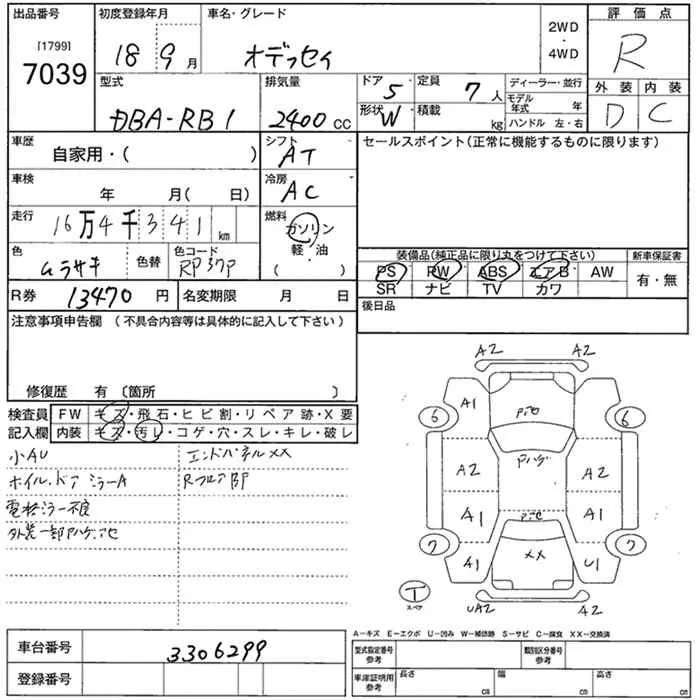 出品番号 初度登録年月 車名・グレード 評価点
[1799]
7039
18 9月 オデッセイ
2WD
・
4WD
R
型式 排気量 ドア 5 定員 7人 ディーラー・並行 外装 内装
DBA-RB1 2400cc 形状 W 積載 kg モデル年式 年 D C
ハンドル 左・右
車歴 自家用・( ) シフト AT セールスポイント(正常に機能するものに限ります)
車検 年 月( 日) 冷房 AC
走行 16万4千341km 燃料 ガソリン
軽・油
( )
色 ムラサキ 色替 色コード RP37P
装備品(純正品に限り丸をつけて下さい) 新車保証書
PS PW ABS エアB AW 有・無
SR ナビ TV カワ
R券 13470円 名変期限 月 日
後日品
注意事項申告欄 (不具合内容等は具体的に記入して下さい)
修復歴 有 〔箇所 〕
検査員 FW キズ・飛石・ヒビ割・リペア跡・X要
記入欄 内装 キズ・汚レ・コゲ・穴・スレ・キレ・破レ
小AU エンドパネルXX
ホイル、ドアミラーA RフロアBP
電格ミラー不良
外装一部アハゲ
A2 A2
6 A1 6
A2 Pハゲ A2
A1 A1
7 A1 XX U1 7
T
スペア
UA2 A2
A−キズ E−エクボ U−凹み W−補修跡 S−サビ C−腐食 XX−交換済
車台番号 3306299
型式指定番号 参考 類別区分番号 参考
登録番号
車庫証明用 参考 長さ cm 幅 cm 高さ cm